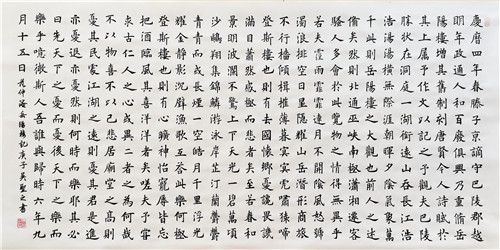 慶曆四年春滕子京謫守巴陵郡越
明年政通人和百廢俱興乃重脩岳
陽樓增其舊制刻唐賢今人詩賦於
其上屬予作文以記之予觀夫巴陵
勝狀在洞庭一湖銜遠山吞長江浩
浩湯湯橫無際涯朝暉夕陰氣象萬
千此則岳陽樓之大觀也前人之述
備矣然則北通巫峽南極瀟湘遷客
騷人多會於此覽物之情得無異乎
若夫霪雨霏霏連月不開陰風怒號
濁浪排空日星隱曜山岳潛形商旅
不行檣傾楫摧薄暮冥冥虎嘯猿啼
登斯樓也則有去國懷鄉憂讒畏譏
滿目蕭然感極而悲者矣至若春和
景明波瀾不驚上下天光一碧萬頃
沙鷗翔集錦鱗游泳岸芷汀蘭郁郁
青青而或長煙一空皓月千里浮光
耀金靜影沉璧漁歌互答此樂何極
登斯樓也則有心曠神怡寵辱皆忘
把酒臨風其喜洋洋者矣嗟夫予嘗
求古仁人之心或異二者之為何哉
不以物喜不以己悲居廟堂之高則
憂其民處江湖之遠則憂其君是進
亦憂退亦憂然則何時而樂耶其必
曰先天下之憂而憂後天下之樂而
樂乎噫微斯人吾誰與歸時六年九
月十五日 范仲淹岳陽樓記庚子吳聖之書